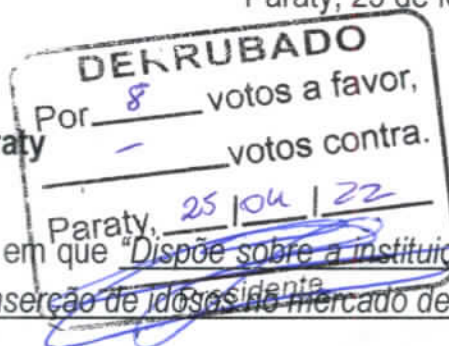 Paraty, 25 de
DERRUBADO
Por 8 votos a favor,
raty
- votos contra.
Paraty, 25 | 04 | 22
em que "Dispõe sobre a instituiç
Presidente
nserção de idosos no mercado de